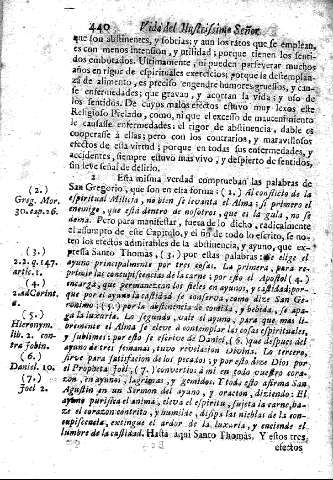 440 Vida del Illustrissimo Señor
que son abstinentes, y sobrias; y aun los ratos que se emplean,
es con menos intension, y utilidad; porque tienen los senti-
dos embotados. Ultimamente, ni pueden perseverar muchos
años en rigor de espirituales exercicios; porque la destemplan-
za de alimento, es preciso engendre humores gruessos, y cau-
se enfermedades; que gravan, y acortan la vida; y uso de
los sentidos. De cuyos malos efectos estuvo muy lexos este
Religioso Prelado, como, ni que el excesso de mantenimiento
le causasse enfermedades: el rigor de abstinencia, dable es
cooperasse à ellas; pero con los contrarios, y maravillosos
efectos de esta virtud; porque en todas sus enfermedades, y
accidentes, siempre estuvo mas vivo, y despierto de sentidos,
sin leve señal de delirio.
2 Esta misma verdad comprueban las palabras de
San Gregorio, que son en esta forma: (2.) Al conflicto de la
espiritual Milicia, no bien se levanta el Alma; si primero el
enemigo, que està dentro de nosotros, que es la gula, no se
doma. Pero para manifestar, fuera de lo dicho, radicalmente
el assumpto de este Capitulo, y el fin de todo lo escrito, se no-
ten los efectos admirables de la abstinencia, y ayuno, que ex-
pressa Santo Thomàs, (3.) por estas palabras: Se elige el
ayuno principalmente por tres cosas. La primera, para re-
primir las concupiscencias de la carne; por esso el Apostol (4.)
encarga, que permanezcan los fieles en ayunos, y castidad; por-
que por el ayuno la castidad se conserva, como dice San Ge-
ronimo: (5.) por la abstinencia de comida, y bebida, se apa-
ga la luxuria. Lo segundo, vale el ayuno, para que mas li-
bremente el Alma se eleve à contemplar las cosas espirituales,
y sublimes: por esso se escrive de Daniel, (6. que despues del
ayuno de tres semanas, tuvo revelacion Divina. Lo tercero,
sirve para satisfacion de los pecados; y por esto dice Dios por
el Propheta Joèl, (7.) convertios à mi en todo vuestro cora-
zon, en ayuno, lagrimas, y gemidos. Y todo esto afirma San
Agustin en un Sermon del ayuno, y oracion, diziendo: El
ayuno purifica el anima, eleva el espiritu, sujeta la carne, ha-
ze el corazon contrito, y humilde, disipa las nieblas de la con-
cupiscencia, extingue el ardor de la luxuria, y enciende el
lumbre de la castidad. Hasta aqui Santo Thomàs. Y estos tres
efectos
(2.)
Greg. Mor.
30. cap. 26.
(3.)
2. 2. q. 147.
artic. 1.
(4.)
2. ad Corint.
6.
(5.)
Hieronym.
lib. 2. con-
tra Jobin.
(6.)
Daniel. 10.
(7.)
Joel 2.